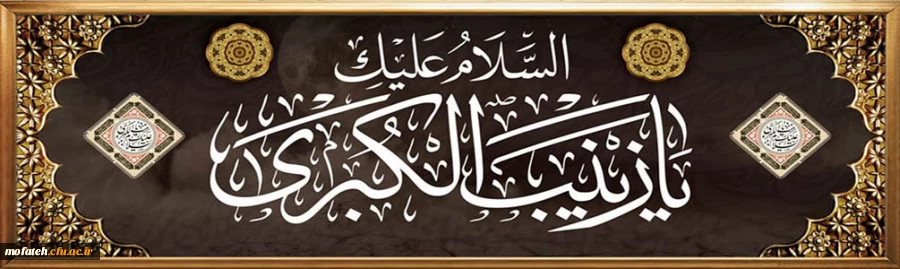 السَّلَامُ عَلَيْكِ
يَا زَيْنَبَ الْكُبْرَىٰ
mofateh.cfu.ac.ir